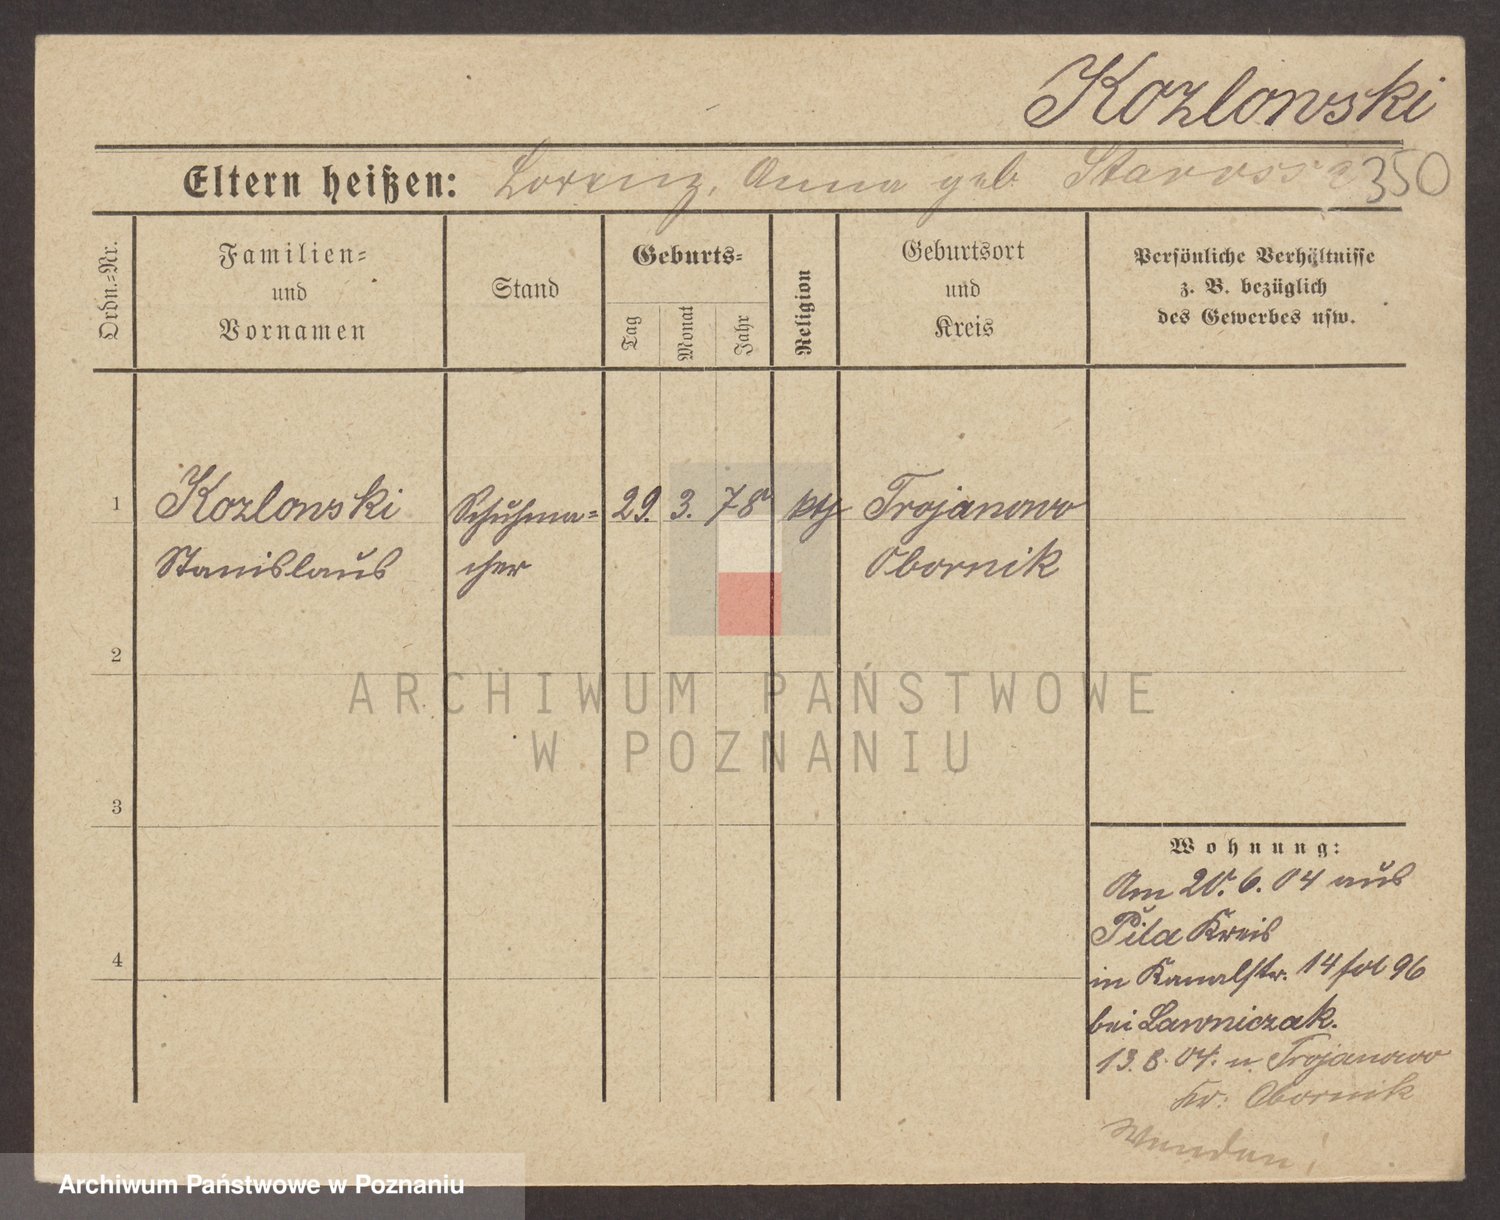 Kozlowski
Eltern heißen: Lorenz, Anna geb. 350
Ordn.-Nr.
Familien-
und
Vornamen
Stand
Geburts-
Tag
Monat
Jahr
Religion
Geburtsort
und
Kreis
Persönliche Verhältnisse
z. B. bezüglich
des Gewerbes usw.
1 Kozlowski Schuhma- 29. 3. 78 kth Trojanowo
Stanislaus cher Obornik
2
ARCHIWUM PAŃSTWOWE
W POZNANIU
3
Wohnung:
Am 20. 6. 04 aus
Pila Kreis
4
in Kanalstr. 14 96
bei Lawniczak.
13. 8. 04. n. Trojanowo
Kr. Obornik
Wenden!
Archiwum Państwowe w Poznaniu